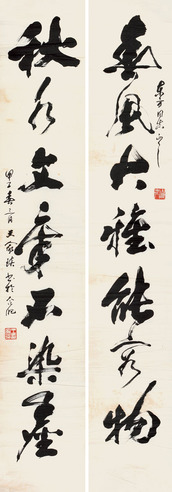 春风大雅能容物
东方同志正之
秋水文章不染尘
甲子春三月